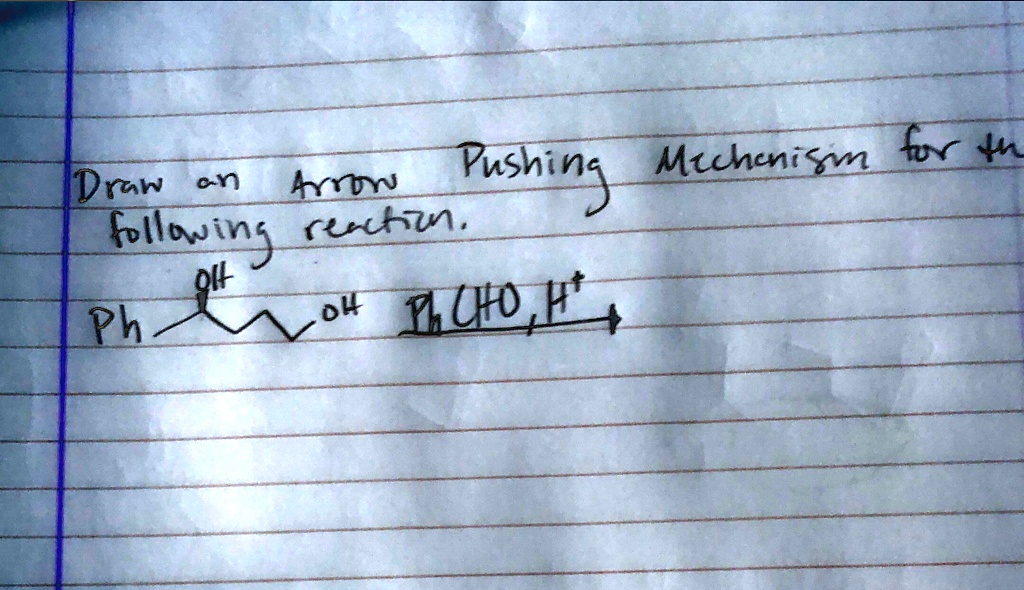 Draw an Arrow Pushing Mechanism for th
following reaction.
OH
Ph OH PhCHO, H+